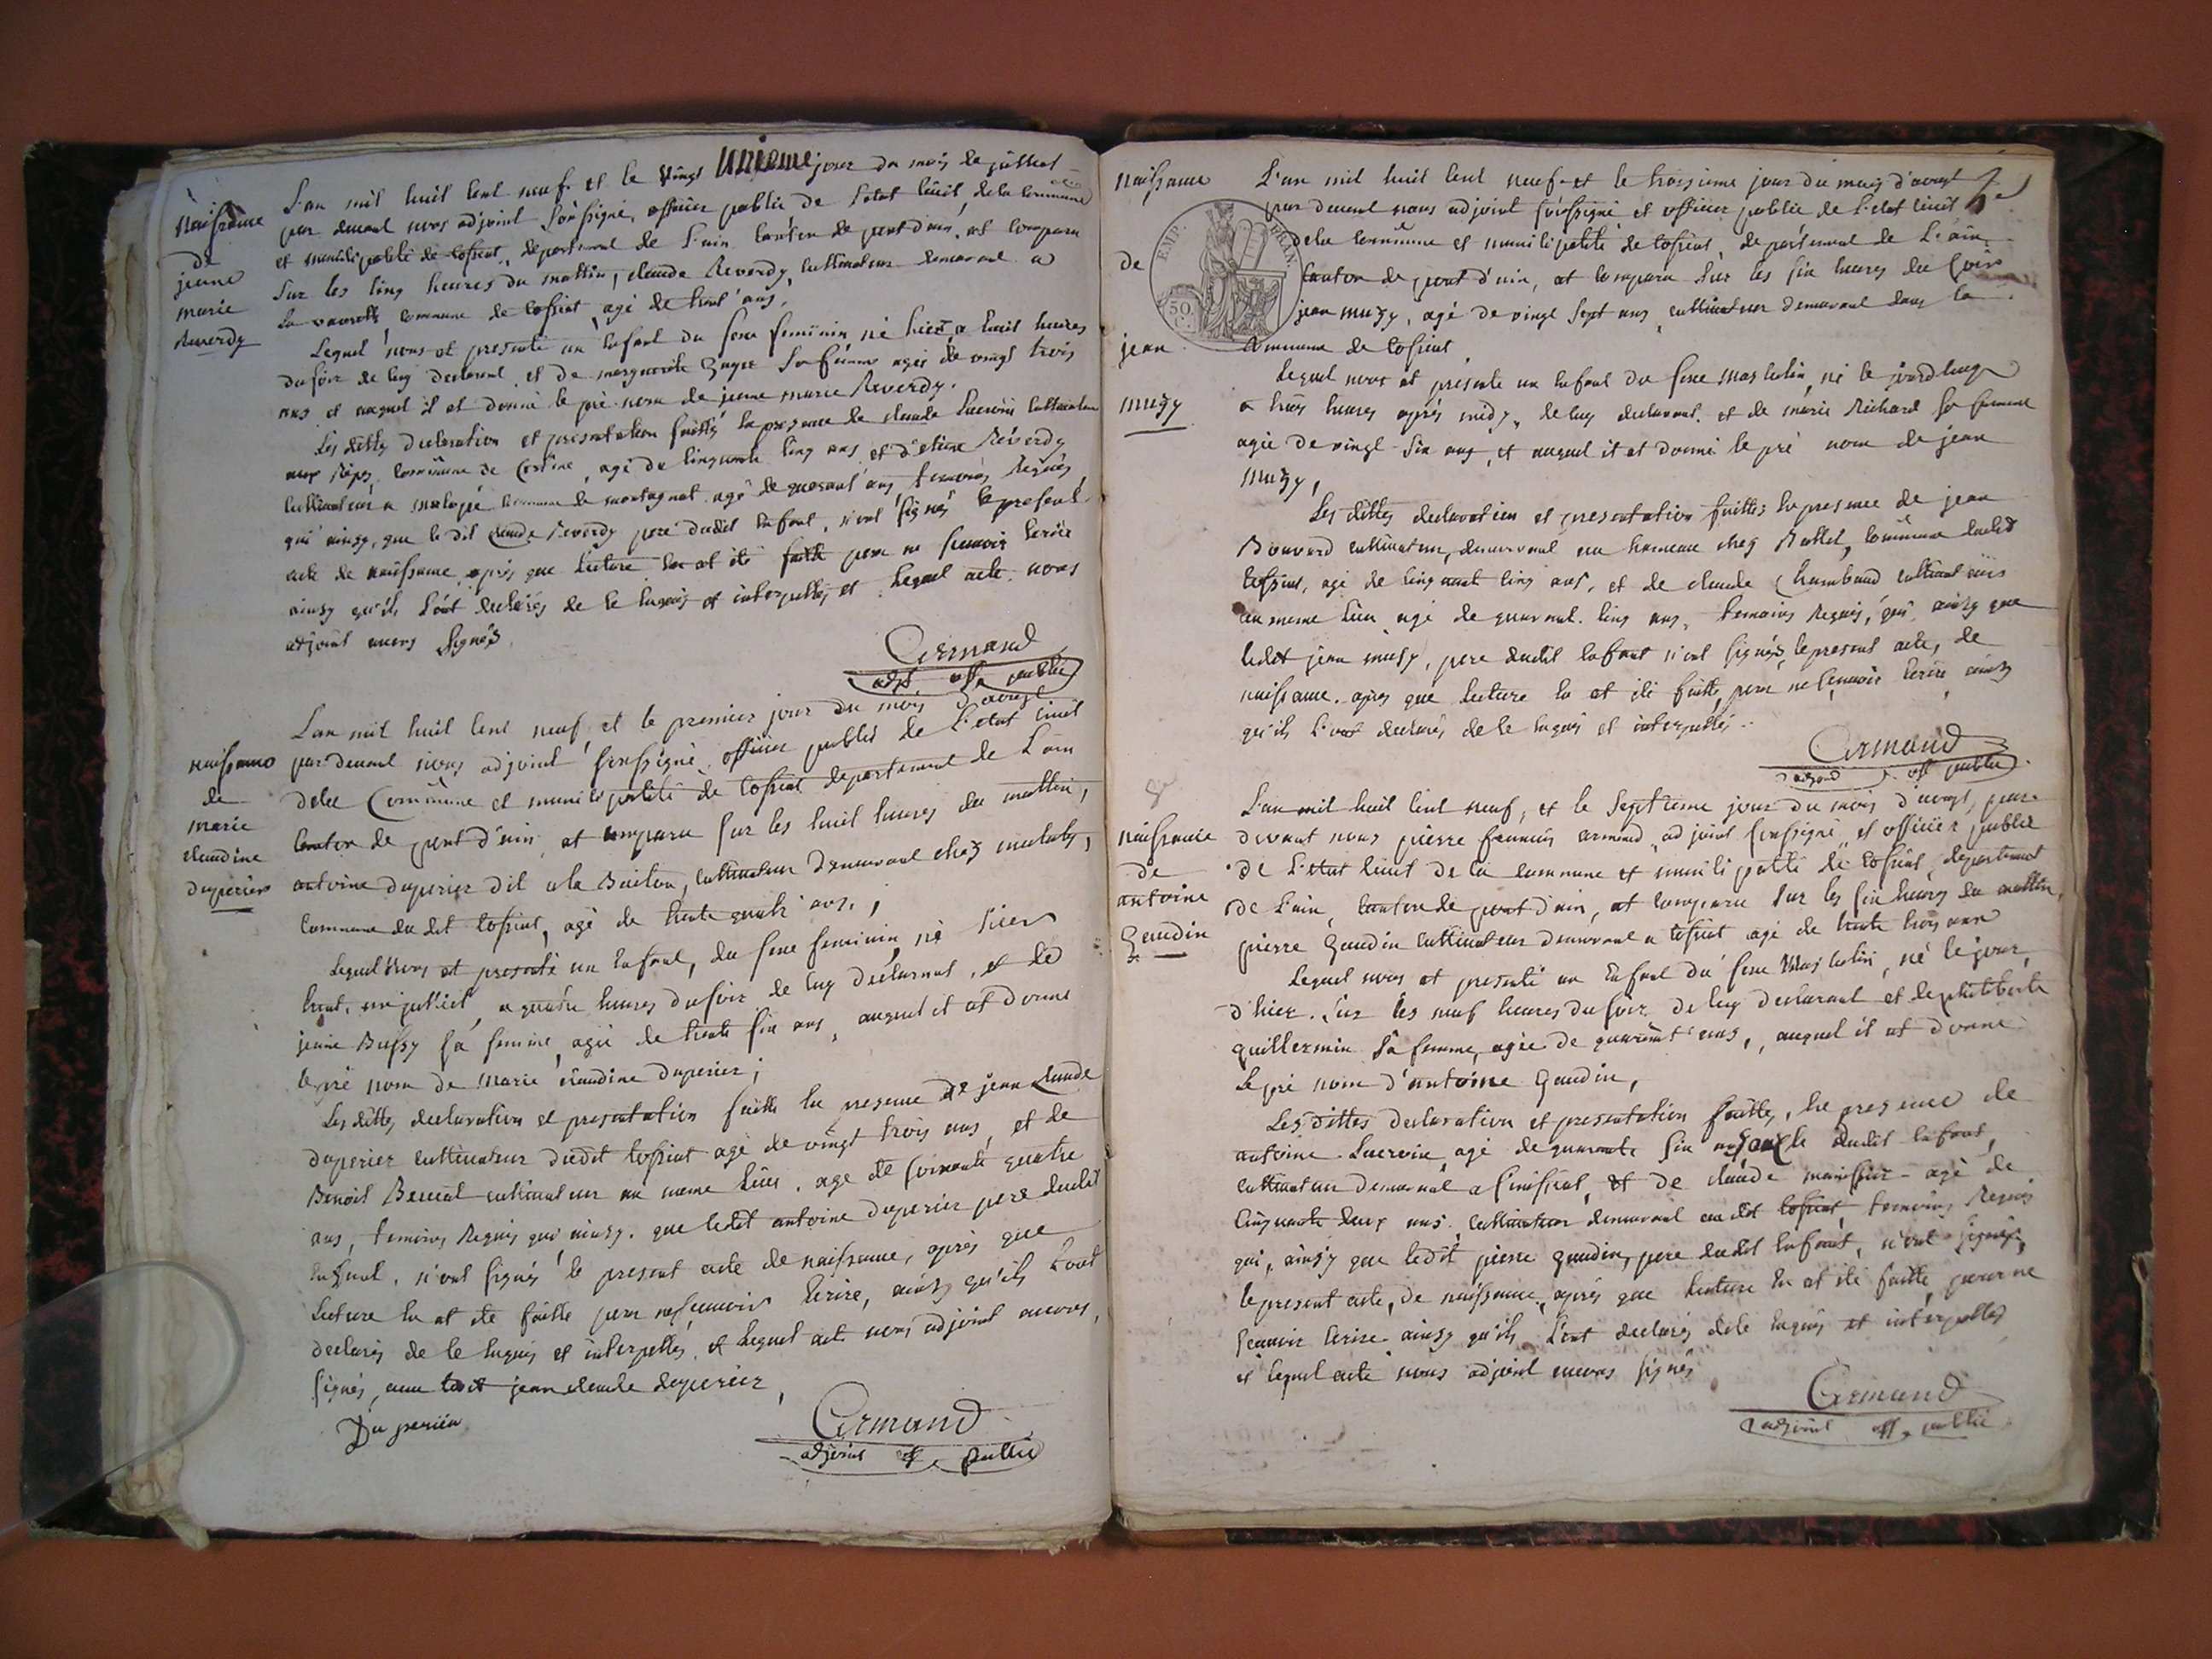 naissance
de
jeanne
marie
Reverdy
L'an mil huit cent neuf et le vingt unieme jour du mois de juillet
par devant nous adjoint soussigné, officier public de l'etat civil, de la commune
et municipalité de tossiat, departement de l'ain canton de pont d'ain, est comparu
sur les cinq heures du mattin, claude Reverdy, cultivateur demeurant a
la commune de tossiat, agé de trent ans,
Lequel nous at presenté un enfant du sexe feminin né hier, a huit heures
du soir de luy declarant, et de marguerite Guyot sa femme agée de vingt trois
ans et auquel il at donné le pré nom de jeanne marie Reverdy.
Les dittes declaration et presentation faittes en presence de claude cultivateur
aux commune de agé de cinquante cinq ans et d'etiene Reverdy
cultivateur a commune de montagnat agé de quarant ans temoins Requis
qui ainsy, que le dit claude Reverdy pere dudit enfant, n'ont signés le present
acte de naissance, après que lecture en at été faitte pour ne scavoir écrire
ainsy qu'ils l'ont declarés de ce enquis et interpellés et lequel acte nous
adjoint avons signés
Armand
adjt. off. public
naissance
de
marie
claudine
duperier
L'an mil huit cent neuf, et le premier jour du mois d'avust
par devant nous adjoint soussigné, officier public de L'etat civil
dela Commune et municipalité de tossiat departement de L'ain
canton de pont d'ain, at comparu sur les huit heures du mattin,
antoine duperier dit a la Bailon, cultivateur demeurant chez
commune du dit tossiat, agé de trente quatr' ans,
Lequel nous at presenté un enfant, du sexe feminin né hier
trent un juilliet, a quatre heures du soir de luy declarant, et de
jeanne Bussy sa femme, agée de trente six ans, auquel il at donné
le pré nom de Marie claudine duperier;
Les dittes declaration et presentation faitte en presence de jean claude
duperier cultivateur dudit tossiat agé de vingt trois ans, et de
Benoit cultivateur au meme lieu, agé de soixante quatre
ans, temoins Requis qui ainsy, que ledit antoine duperier pere dudit
enfant, n'ont signés le present acte de naissance, après que
lecture en at été faitte pour ne scavoir écrire, ainsy qu'ils l'ont
declarés de ce enquis et interpellés, et lequel acte nous adjoint avons,
signés, avec jean claude duperier,
Du perier
Armand
adjoint off. public
naissance
de
jean
muzy
EMP. FRAN.
50 C.
L'an mil huit cent neuf et le troisieme jour du mois d'avust
par devant nous adjoint soussigné et officier public de l'etat civil
dela commune et municipalité de tossiat, departement de L'ain
canton de pont d'ain, at comparu sur les six heures du soir
jean muzy, agé de vingt sept ans, cultivateur demeurant dans la
commune de tossiat,
Lequel nous at presenté un enfant du sexe masculin, né le
a trois heures après midy, de luy declarant, et de marie Richard sa femme
agée de vingt six ans, et auquel il at donné le pré nom de jean
muzy,
Les dittes declaration et presentation faittes en presence de jean
Bouvard cultivateur, demeurant au hameau chez commune dudit
tossiat, agé de cinquant cinq ans, et de claude Chambaud cultivateur
au meme lieu agé de quarant cinq ans, temoins Requis, qui ainsy que
ledit jean muzy, pere dudit enfant n'ont signés, le present acte, de
naissance, apres que lecture en at été faitte, pour ne scavoir écrire ainsy
qu'ils l'ont declarés de ce enquis et interpellés.
Armand
adjoint off. public
naissance
de
antoine
Gaudin
L'an mil huit cent neuf, et le septieme jour du mois d'avust, par
devant nous pierre francois armand, adjoint soussigné, et officier public
de L'etat civil de la commune et municipalité de tossiat, departement
de L'ain, canton de pont d'ain, at comparu sur les six heures du mattin,
pierre Gaudin cultivateur demeurant a tossiat agé de trente trois ans
Lequel nous at presenté un enfant du sexe masculin, né le jour
d'hier, sur les neuf heures du soir de luy declarant et de philiberte
Guillermin sa femme, agée de quarant' ans, auquel il at donné
Le pré nom d'antoine Gaudin,
Les dittes declaration et presentation faittes, en presence de
antoine agé de quarante six ans oncle dudit enfant,
cultivateur demeurant a et de claude agé de
cinquante deux ans, cultivateur demeurant au dit tossiat, temoins Requis
qui, ainsy que ledit pierre gaudin, pere dudit enfant, n'ont signés,
le present acte, de naissance, après que lecture en at été faitte, pour ne
scavoir écrire ainsy qu'ils l'ont declarés de ce enquis et interpellés
et lequel acte nous adjoint avons signés
Armand
adjoint off. public